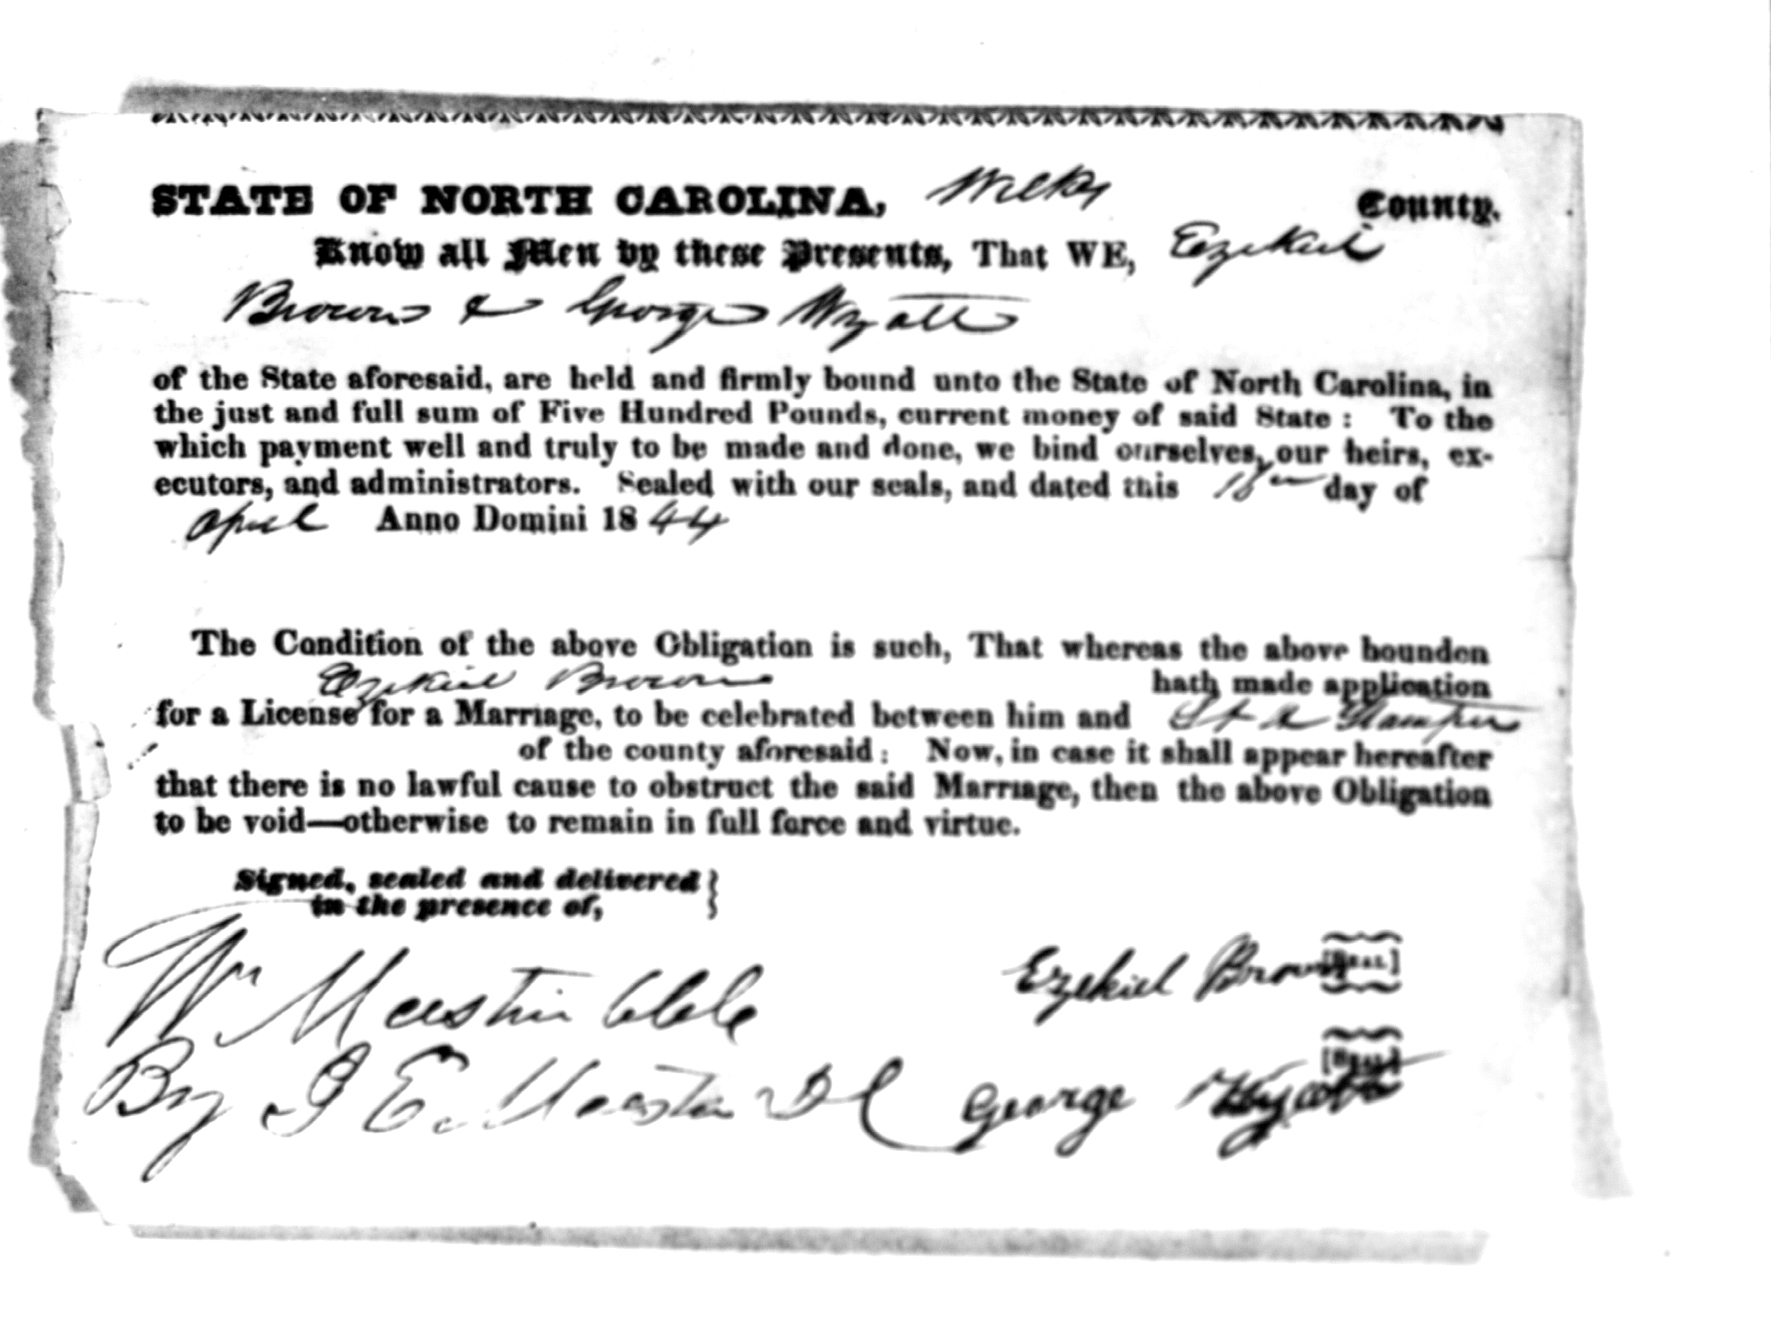 STATE OF NORTH CAROLINA, Wilks County.
Know all Men by these Presents, That WE, Ezekiel
Brown & George Wyatt
of the State aforesaid, are held and firmly bound unto the State of North Carolina, in
the just and full sum of Five Hundred Pounds, current money of said State: To the
which payment well and truly to be made and done, we bind ourselves, our heirs, ex-
ecutors, and administrators. Sealed with our seals, and dated this day of
April Anno Domini 1844
The Condition of the above Obligation is such, That whereas the above bounden
Ezekiel Brown hath made application
for a License for a Marriage, to be celebrated between him and Stamper
of the county aforesaid: Now, in case it shall appear hereafter
that there is no lawful cause to obstruct the said Marriage, then the above Obligation
to be void—otherwise to remain in full force and virtue.
Signed, sealed and delivered }
in the presence of,
Wm Mastin Ezekiel Brown [SEAL]
By E. Mastin George Wyatt [SEAL]